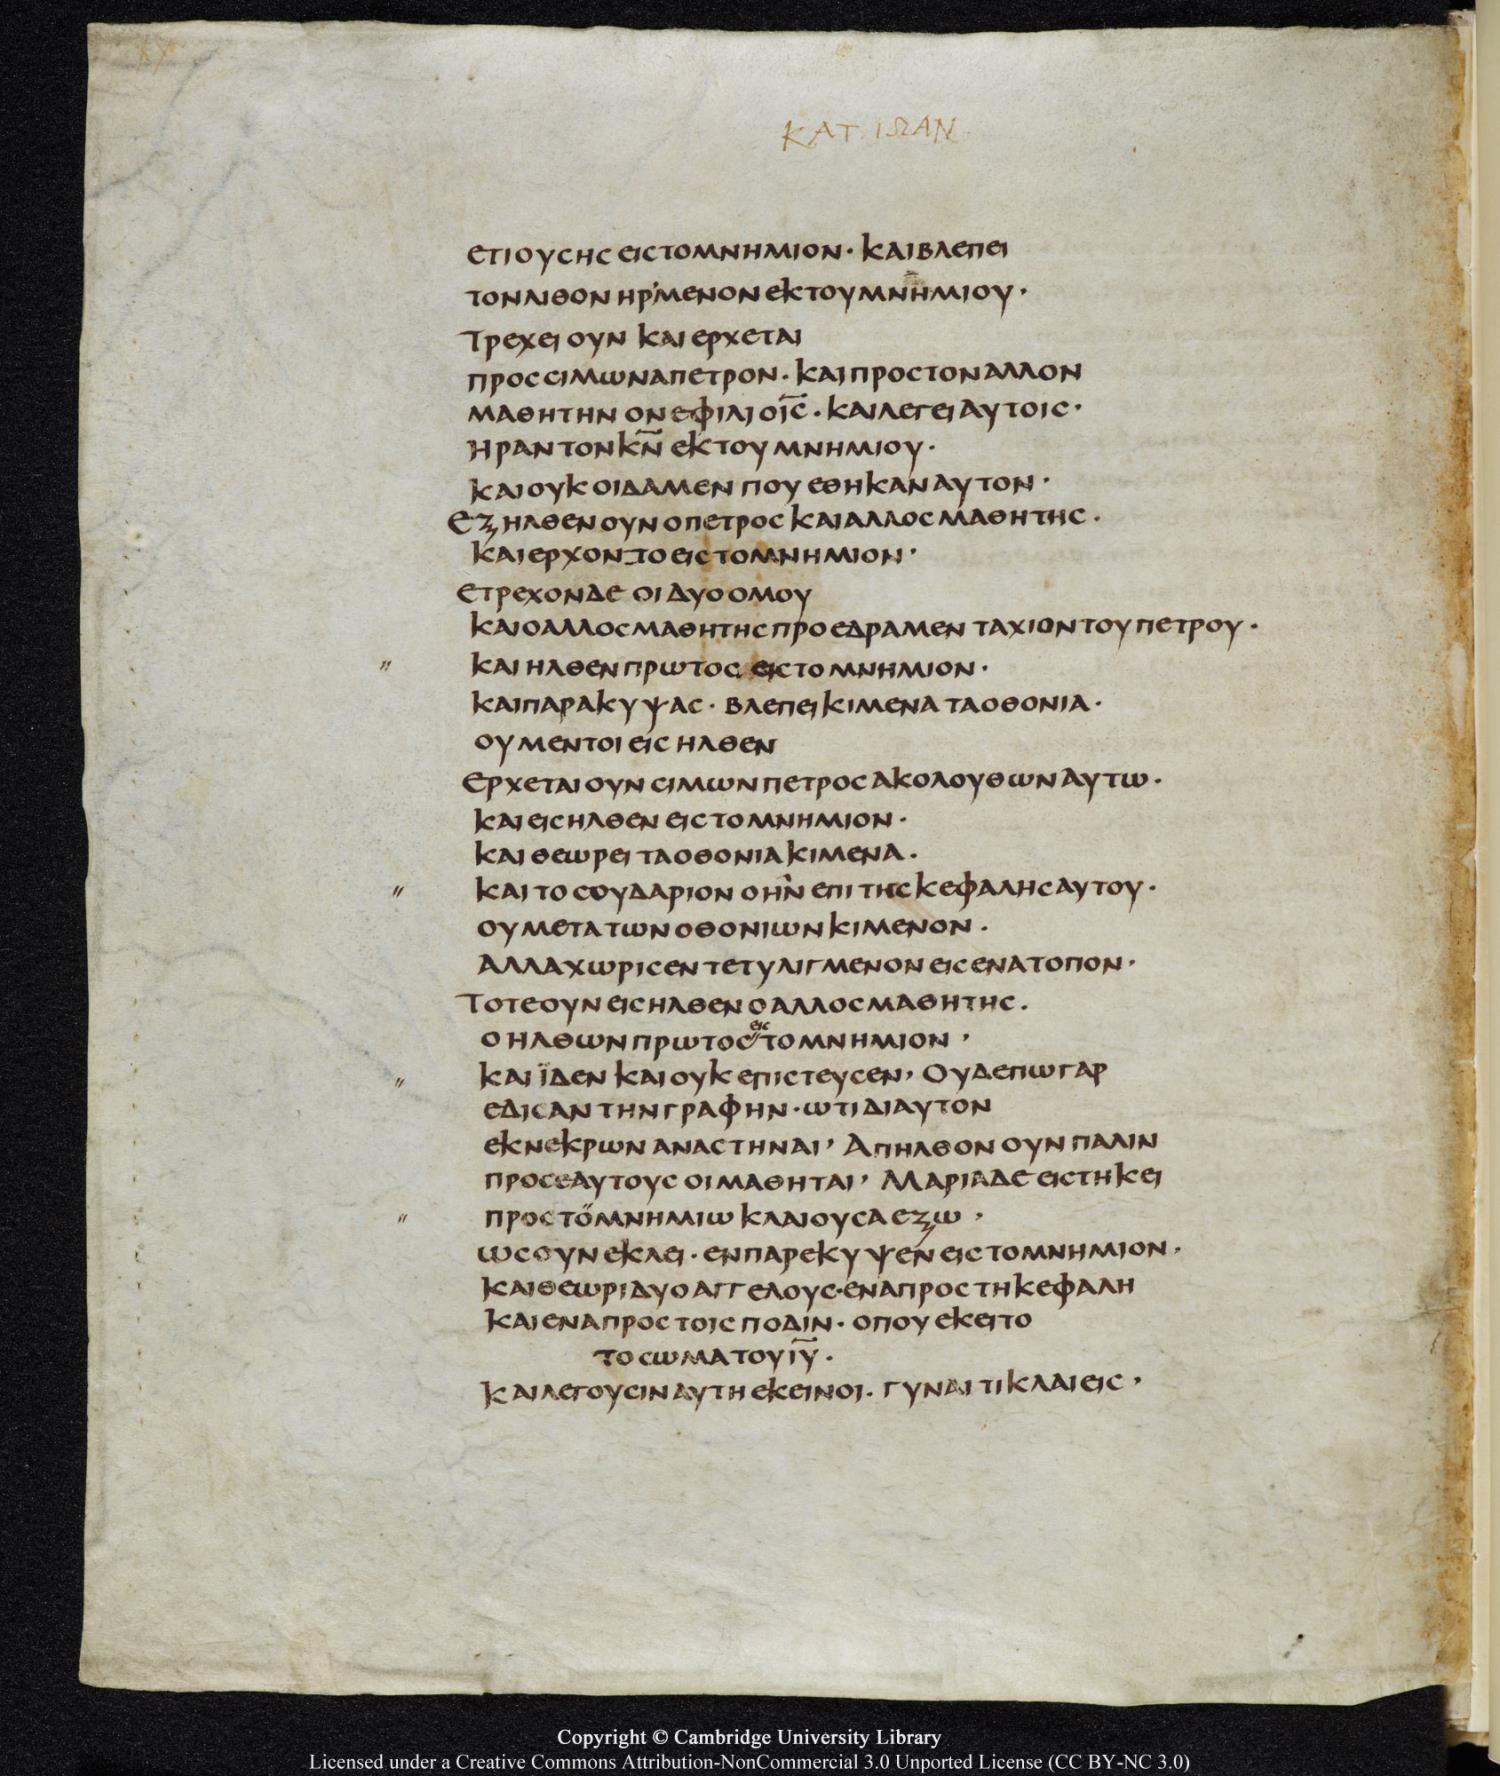 ΚΑΤ. ΙΩΑΝ.
ΕΤΙΟΥϹΗϹ ΕΙϹΤΟΜΝΗΜΙΟΝ· ΚΑΙΒΛΕΠΕΙ
ΤΟΝΛΙΘΟΝ ΗΡ'ΜΕΝΟΝ ΕΚΤΟΥΜΝΗΜΙΟΥ·
ΤΡΕΧΕΙ ΟΥΝ ΚΑΙ ΕΡΧΕΤΑΙ
ΠΡΟϹϹΙΜΩΝΑΠΕΤΡΟΝ· ΚΑΙΠΡΟϹΤΟΝΑΛΛΟΝ
ΜΑΘΗΤΗΝ ΟΝΕΦΙΛΙ ΟΙ̅Ϲ̅· ΚΑΙΛΕΓΕΙ ΑΥΤΟΙϹ·
ΗΡΑΝ ΤΟΝΚ̅Ν̅ ΕΚΤΟΥ ΜΝΗΜΙΟΥ·
ΚΑΙΟΥΚ ΟΙΔΑΜΕΝ ΠΟΥ ΕΘΗΚΑΝ ΑΥΤΟΝ·
ΕΞΗΛΘΕΝ ΟΥΝ ΟΠΕΤΡΟϹ ΚΑΙΑΛΛΟϹ ΜΑΘΗΤΗϹ·
ΚΑΙΕΡΧΟΝΤΟ ΕΙϹΤΟΜΝΗΜΙΟΝ·
ΕΤΡΕΧΟΝΔΕ ΟΙ ΔΥΟ ΟΜΟΥ
ΚΑΙΟΑΛΛΟϹΜΑΘΗΤΗϹ ΠΡΟΕΔΡΑΜΕΝ ΤΑΧΙΟΝ ΤΟΥ ΠΕΤΡΟΥ·
" ΚΑΙ ΗΛΘΕΝΠΡΩΤΟϹ ΕΙϹΤΟ ΜΝΗΜΙΟΝ·
ΚΑΙΠΑΡΑΚΥΨΑϹ· ΒΛΕΠΕΙ ΚΙΜΕΝΑ ΤΑΟΘΟΝΙΑ·
ΟΥ ΜΕΝΤΟΙ ΕΙϹ ΗΛΘΕΝ
ΕΡΧΕΤΑΙ ΟΥΝ ϹΙΜΩΝΠΕΤΡΟϹ ΑΚΟΛΟΥΘΩΝ ΑΥΤΩ·
ΚΑΙ ΕΙϹΗΛΘΕΝ ΕΙϹΤΟ ΜΝΗΜΙΟΝ·
ΚΑΙ ΘΕΩΡΕΙ ΤΑΟΘΟΝΙΑ ΚΙΜΕΝΑ·
" ΚΑΙ ΤΟ ϹΟΥΔΑΡΙΟΝ ΟΗΝ ΕΠΙ ΤΗϹ ΚΕΦΑΛΗϹ ΑΥΤΟΥ·
ΟΥ ΜΕΤΑ ΤΩΝΟΘΟΝΙΩΝ ΚΙΜΕΝΟΝ·
ΑΛΛΑ ΧΩΡΙϹ ΕΝ ΤΕΤΥΛΙΓΜΕΝΟΝ ΕΙϹ ΕΝΑ ΤΟΠΟΝ·
ΤΟΤΕ ΟΥΝ ΕΙϹΗΛΘΕΝ Ο ΑΛΛΟϹ ΜΑΘΗΤΗϹ·
Ο ΗΛΘΩΝ ΠΡΩΤΟϹ ΕΙϹ ΤΟΜΝΗΜΙΟΝ ,
" ΚΑΙ ΪΔΕΝ ΚΑΙ ΟΥΚ ΕΠΙϹΤΕΥϹΕΝ, ΟΥΔΕΠΩ ΓΑΡ
ΕΔΙϹΑΝ ΤΗΝ ΓΡΑΦΗΝ· ΩΤΙ ΔΙ ΑΥΤΟΝ
ΕΚΝΕΚΡΩΝ ΑΝΑϹΤΗΝΑΙ, ΑΠΗΛΘΟΝ ΟΥΝ ΠΑΛΙΝ
ΠΡΟϹΕΑΥΤΟΥϹ ΟΙ ΜΑΘΗΤΑΙ, ΜΑΡΙΑΔΕ ΕΙϹΤΗΚΕΙ
" ΠΡΟϹ ΤΟ̈ΜΝΗΜΙΩ ΚΛΑΙΟΥϹΑ ΕΞΩ ,
ΩϹΟΥΝ ΕΚΛΕΙ· ΕΝΠΑΡΕΚΥΨΕΝ ΕΙϹ ΤΟΜΝΗΜΙΟΝ·
ΚΑΙΘΕΩΡΙ ΔΥΟ ΑΓΓΕΛΟΥϹ·ΕΝΑΠΡΟϹ ΤΗΚΕΦΑΛΗ
ΚΑΙ ΕΝΑΠΡΟϹ ΤΟΙϹ ΠΟΔΙΝ· ΟΠΟΥ ΕΚΕΙΤΟ
ΤΟ ϹΩΜΑ ΤΟΥ Ι̅Υ̅·
ΚΑΙΛΕΓΟΥϹΙΝ ΑΥΤΗ ΕΚΕΙΝΟΙ· ΓΥΝΑΙ ΤΙ ΚΛΑΙΕΙϹ,
Copyright © Cambridge University Library
Licensed under a Creative Commons Attribution-NonCommercial 3.0 Unported License (CC BY-NC 3.0)